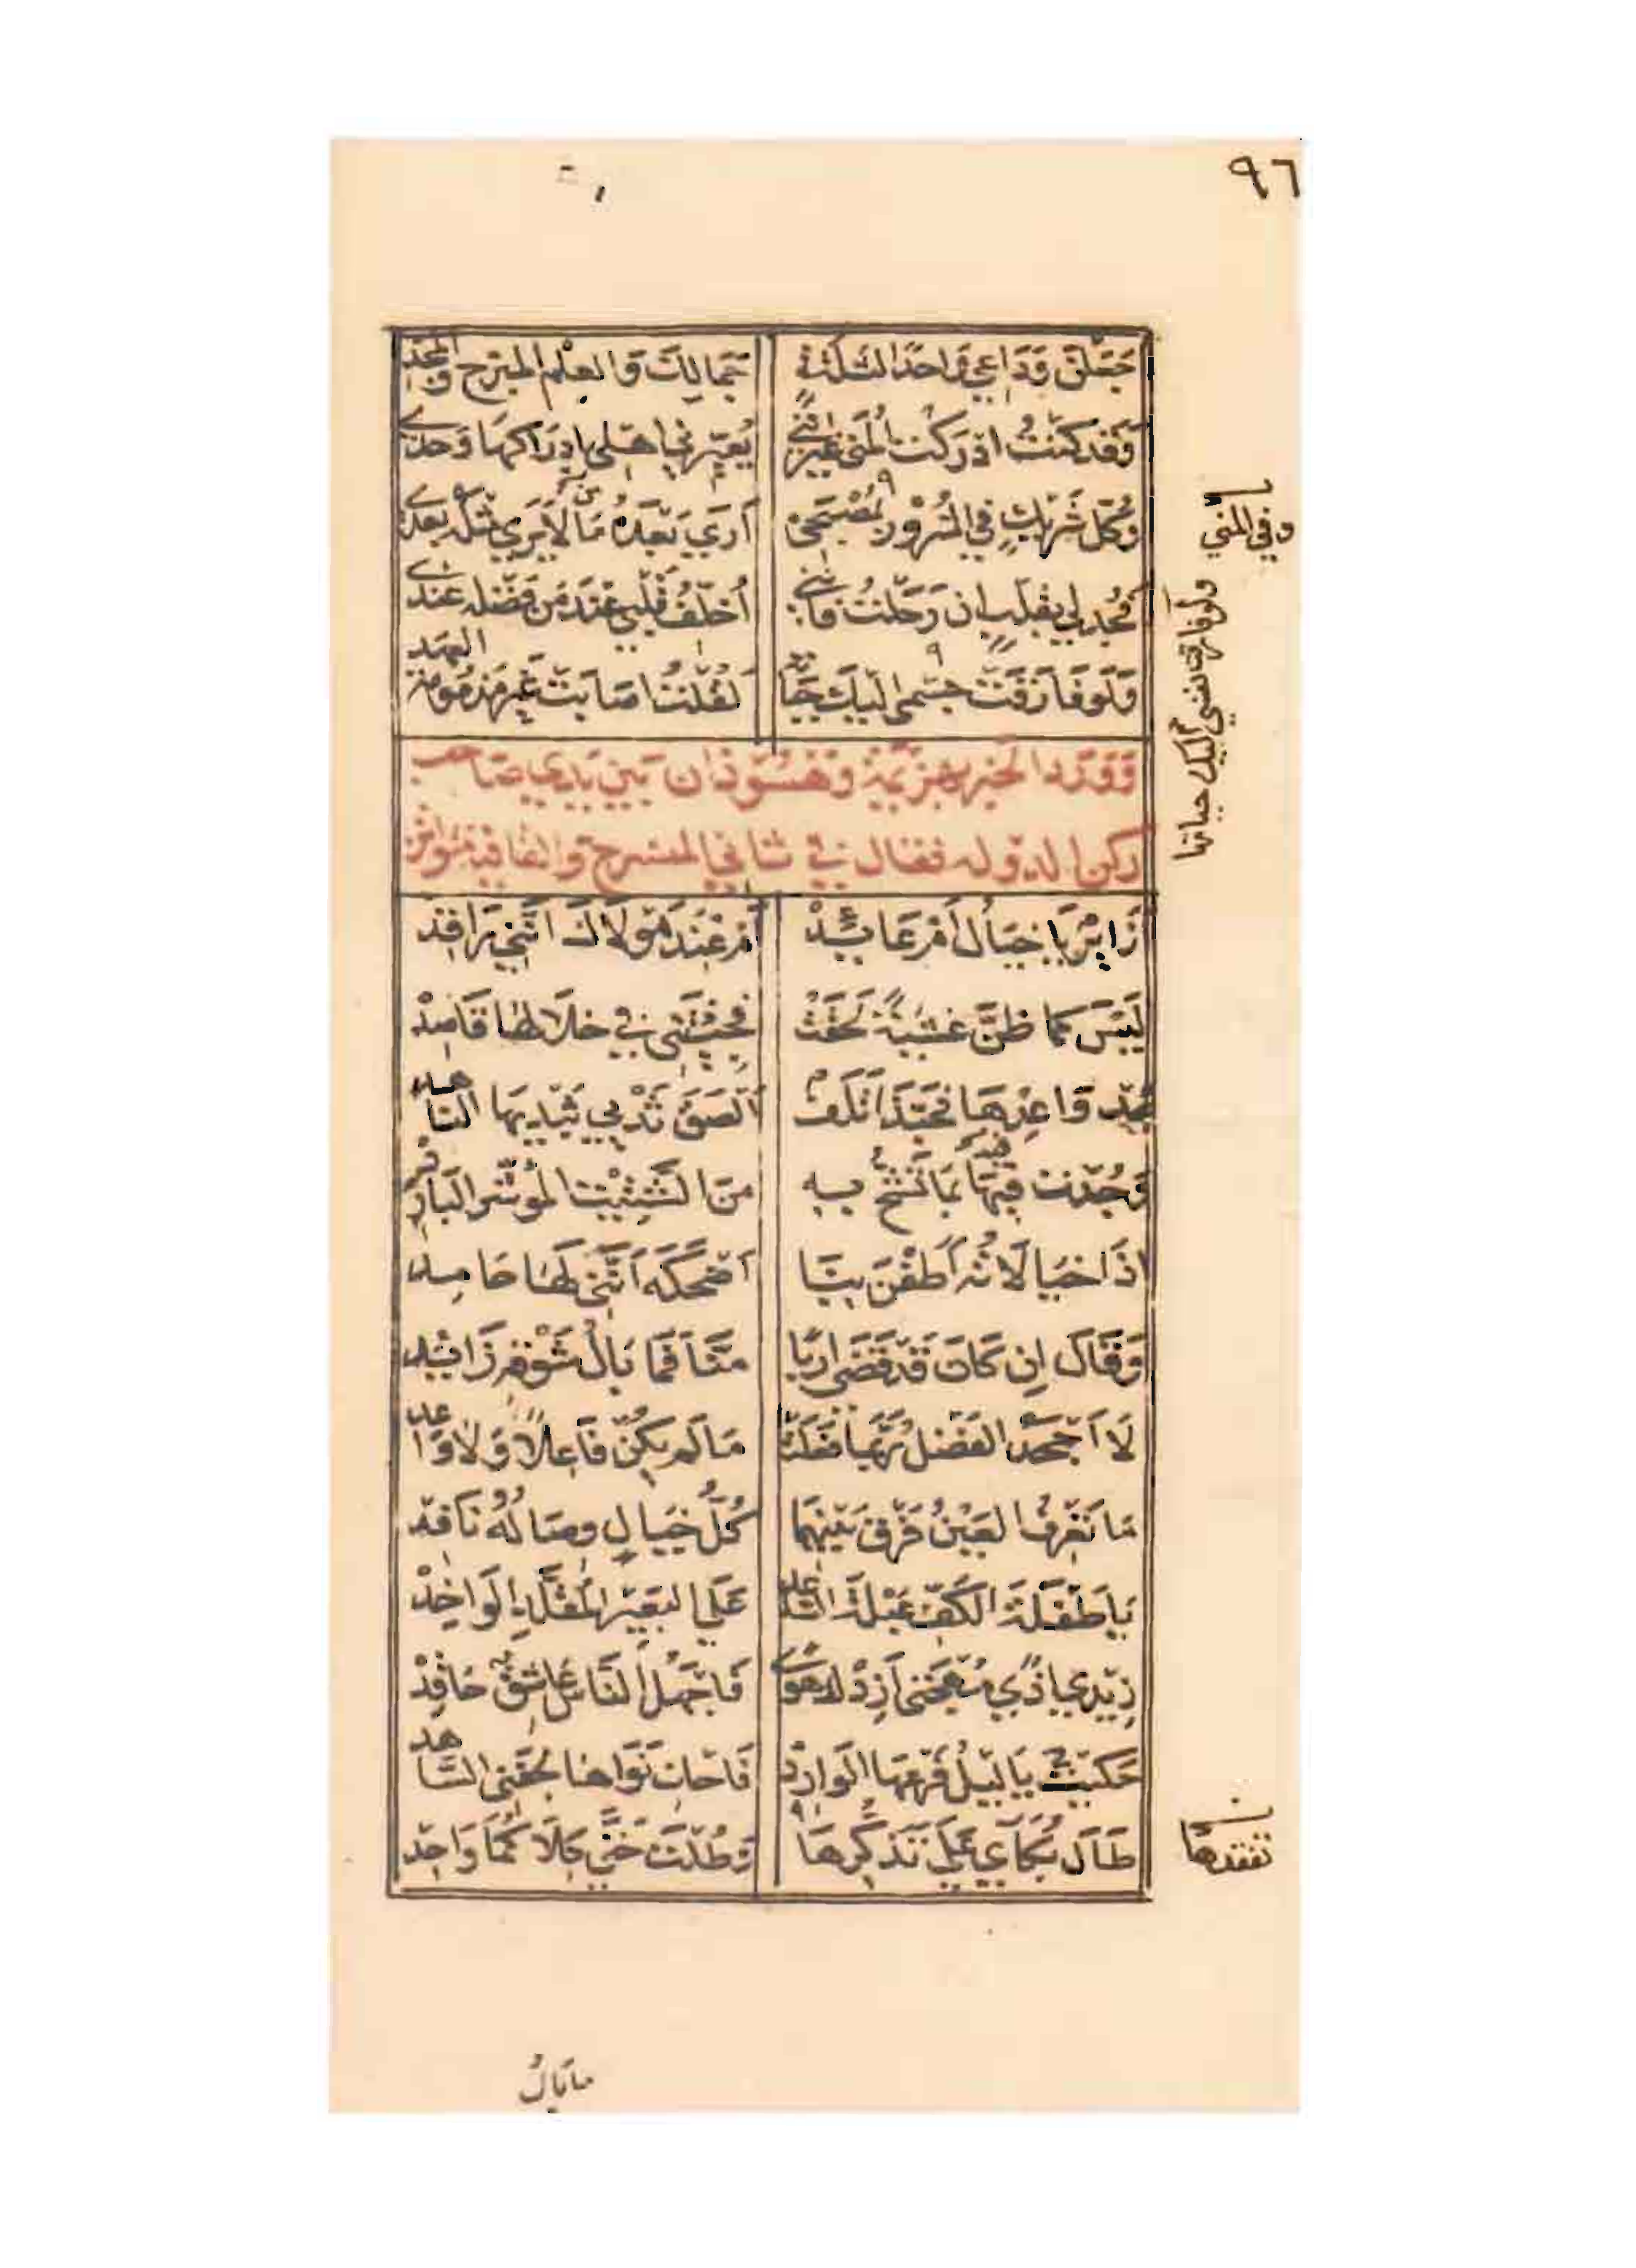 ٩٦
جَعَلْنَ وَدَاعِي وَاحدًا لثَلٰثَةٍ جَمَالِكَ وَالعِلْمِ المُبَرِّحِ وَالمَجْدِ
وَقَد كُنْتُ ادْرَكْتُ المُنَى غَيْرَ أَنَّنِي يُعَيِّرُنِي اهْلِي بادِرَاكِهَا وَحْدِي
وَكُلُّ شَرِيْكٍ فِي السُرُوْرِ بمُصْبَحِي أَرَى بَعْدَهُ مَن لَا يَرَى مِثْلَهُ بَعْدِي
فَجُدْ لِي بِقَلْبٍ ان رَحَلْتُ فَاِنَّنِي أُخَلِّفُ قَلْبِي عِنْدَ مَن فَضْلُه عِنْدِي
وَلَوْ فَارَقَتْ جِسْمِي الَيْكَ حَيَاتُهُ لَقُلْتُ اصَابَتْ غَيْرَ مَذْمُومَةِ العَهْدِ
وَوَرَدَ الخبر بهزيمة وهسوذان بين يدي صاحب
ركن الدولة فقال في ثاني المنسرح والقافية متواتر
أَزَائِرٌ يَا خَيَالُ أَمْ عَائِدْ أَمْ عِنْدَ مَوْلَاكَ أَنَّنِي رَاقِدْ
لَيْسَ كَمَا ظَنَّ غَشْيَةٌ لَحِقَتْ فَجِئْتَنِي فِي خِلَالِهَا قَاصِدْ
عُدْ وَاعِدْهَا فَحَبَّذَا تَلَفٌ أَلْصَقَ ثَدْيِي بثَدْيِهَا النَّاهِدْ
وَجُدْتَ فِيْهِ بمَا تَشُحُّ بِهِ مِنَ الشَّتِيْتِ المُؤَشَّرِ البَارِدْ
اذَا خَيَالَاتُهُ أَطَفْنَ بِنَا أَضْحَكَهُ أَنَّنِي لَهَا حَامِدْ
وَقَالَ اِن كَانَ قَدْ قَضَى اَرَبًا مِنَّا فَمَا بَالُ شَوْقِهِ زَائِدْ
لَا أَجْحَدُ الفَضْلَ رُبَّمَا فَعَلَتْ مَا لَم يَكُنْ فَاعِلًا وَلَا وَاعِدْ
مَا تَعْرِفُ العَيْنُ فَرْقَ بَيْنِهِمَا كُلٌّ خَيَالٌ وِصَالُهُ نَافِدْ
يَا طَفْلَةَ الكَفِّ عَبْلَةَ السَّاعِدْ عَلَى البَعِيْرِ المُقَلَّدِ الوَاخِدْ
زِيْدِي اذَى مُهْجَتِي أَزِدْكِ هَوًى فَأَجْهَلُ النَّاسِ عَاشِقٌ حَاقِدْ
حَكَيْتَ يَا لَيْلُ فَرْعَهَا الوَارِدْ فَاحْكِ نَوَاهَا لجَفْنِي السَّاهِدْ
طَالَ بُكَائِي عَلَى تَذَكُّرِهَا وَطُلْتَ حَتَّى كِلَاكُمَا وَاحِدْ
وفي المنى
ولو فارقت نفسي اليك حياتها
تفقدها
مابالُ